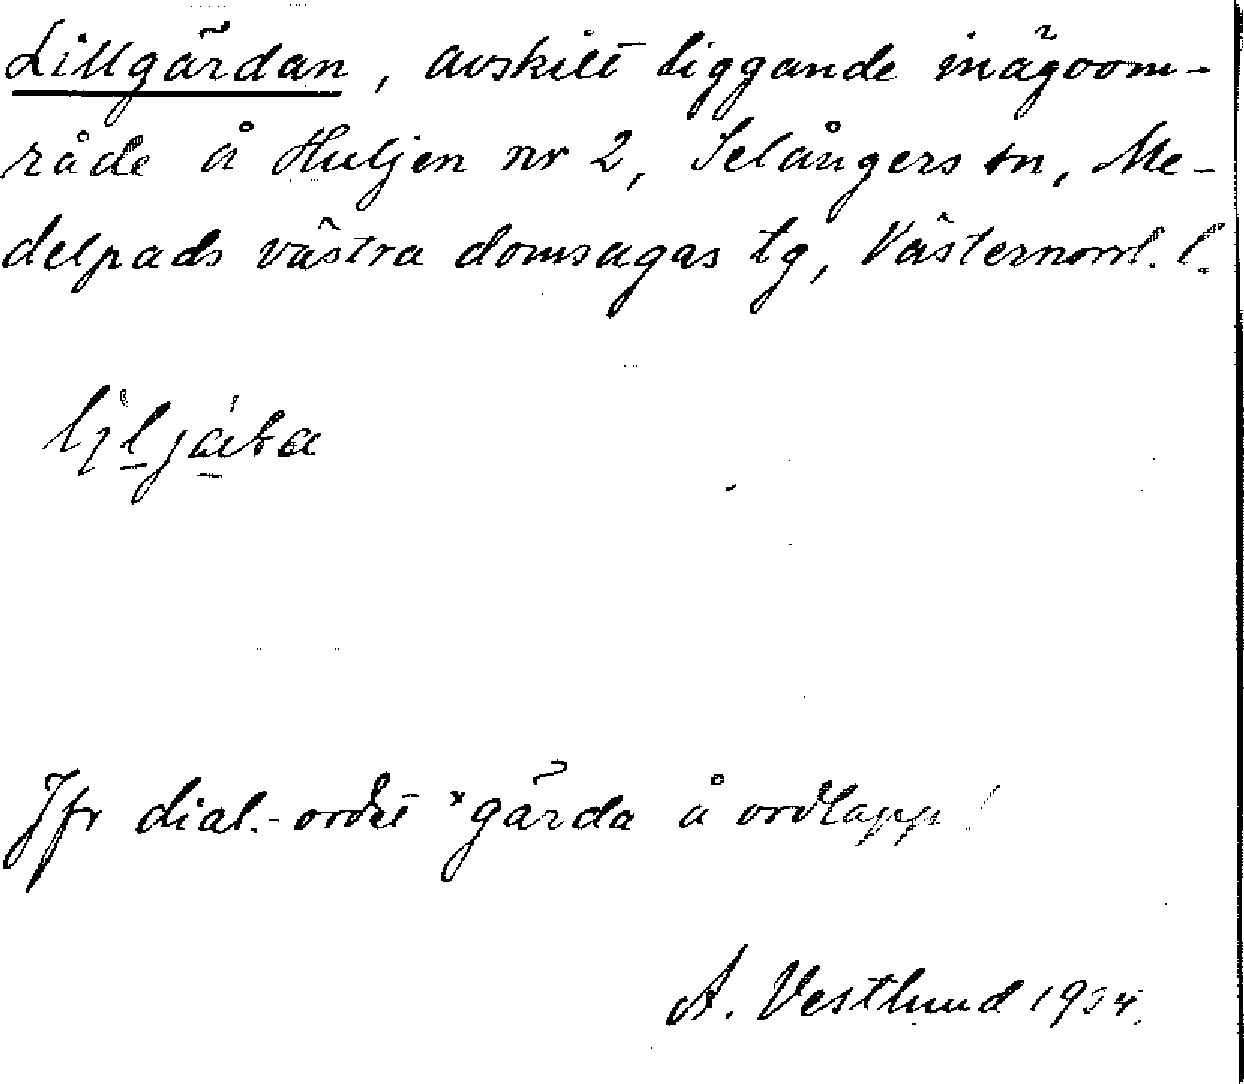 Lillgärdan, avskilt liggande inägoom-
råde å Huljen nr 2, Selångers sn, Me-
delpads västra domsagas tg, Västernorrl. l.
Jfr dial.-ordet *gärda å ordlapp!
A. Vestlund 1934.